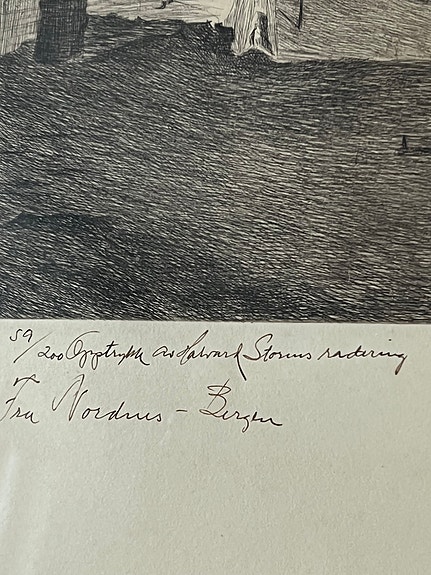 59/200 Opptrykk av Halvard Storms radering
Fra Nordnes - Bergen